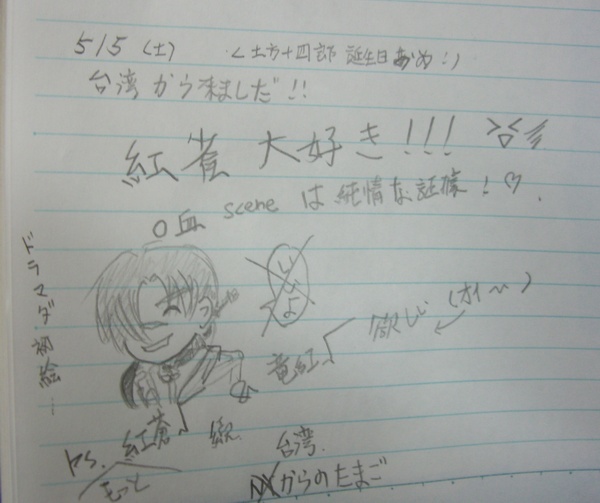 5/5 (土) (土方十四郎 誕生日おめ!)
台湾から来ました!!
紅雀 大好き!!!
○血 scene は純情な証據!♡
ドラマダ初絵…
いじよ
竜紅 欲しい (オイ〜)
P.S. 紅蒼
もっと
台湾
からのたまご